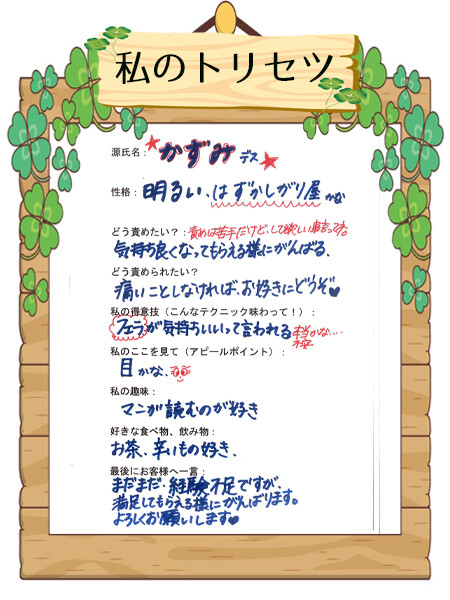 私のトリセツ
源氏名：★かずみデス★
性格：明るい、はずかしがり屋かな
どう責めたい？：責めは苦手だけど、して欲しい事言って下さい。
気持ち良くなってもらえる様にがんばる、
どう責められたい？
痛いことしなければ、お好きにどうぞ♥
私の得意技（こんなテクニック味わって！）：
フェラが気持ちいいって言われる
本当かな…
私のここを見て（アピールポイント）：
目かな、
私の趣味：
マンガ読むのが好き
好きな食べ物、飲み物：
お茶、辛いもの好き、
最後にお客様へ一言：
まだまだ・経験不足ですが、
満足してもらえる様にがんばります。
よろしくお願いします♥